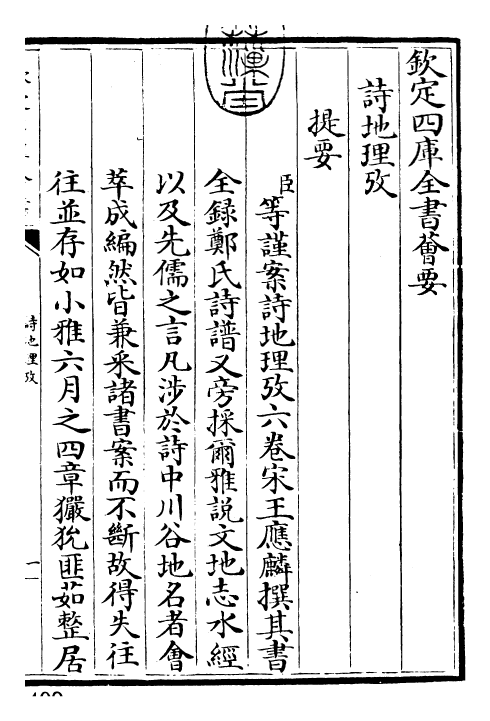 欽定四庫全書薈要
詩地理攷
提要
臣等謹案詩地理攷六卷宋王應麟撰其書
全錄鄭氏詩譜又旁採爾雅說文地志水經
以及先儒之言凡涉於詩中川谷地名者會
萃成編然皆兼采諸書案而不斷故得失往
往並存如小雅六月之四章玁狁匪茹整居
詩地理攷
一